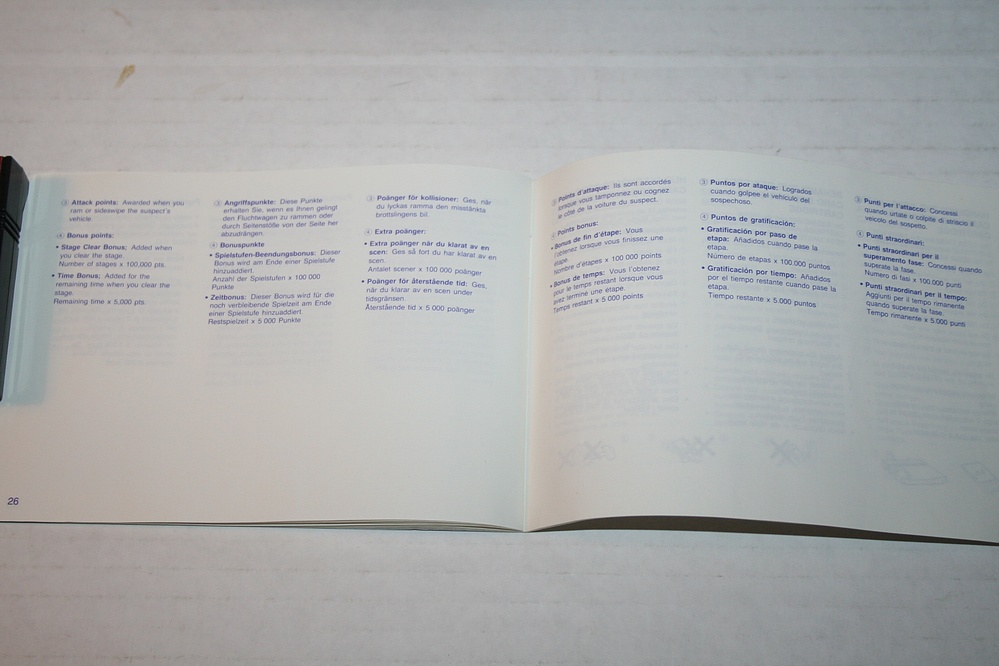 ③ Attack points: Awarded when you
ram or sideswipe the suspect's
vehicle.
④ Bonus points:
• Stage Clear Bonus; Added when
you clear the stage.
Number of stages x 100,000 pts.
• Time Bonus; Added for the
remaining time when you clear the
stage.
Remaining time x 5,000 pts.
③ Angriffspunkte: Diese Punkte
erhalten Sie, wenn es Ihnen gelingt
den Fluchtwagen zu rammen oder
durch Seitenstöße von der Seite her
abzudrängen.
④ Bonuspunkte
• Spielstufen-Beendungsbonus: Dieser
Bonus wird am Ende einer Spielstufe
hinzuaddiert.
Anzahl der Spielstufen x 100 000
Punkte
• Zeitbonus: Dieser Bonus wird für die
noch verbleibende Spielzeit am Ende
einer Spielstufe hinzuaddiert.
Restspielzeit x 5 000 Punkte
③ Poänger för kollisioner: Ges, når
du lyckas ramma den misstänkta
brottslingens bil.
④ Extra poänger:
• Extra poänger når du klarat av en
scen: Ges så fort du har klarat av en
scen.
Antalet scener x 100 000 poänger
• Poänger för återstående tid: Ges,
når du klarar av en scen under
tidsgränsen.
Återstående tid x 5 000 poänger
26
③ Points d'attaque: Ils sont accordés
lorsque vous tamponnez ou cognez
le côté de la voiture du suspect.
④ Points bonus:
• Bonus de fin d'étape: Vous
l'obtenez lorsque vous finissez une
étape.
Nombre d'étapes x 100 000 points
• Bonus de temps: Vous l'obtenez
pour le temps restant lorsque vous
avez terminé une étape.
Temps restant x 5 000 points
③ Puntos por ataque: Logrados
cuando golpee el vehículo del
sospechoso.
④ Puntos de gratificación:
• Gratificación por paso de
etapa: Añadidos cuando pase la
etapa.
Número de etapas x 100.000 puntos
• Gratificación por tiempo: Añadidos
por el tiempo restante cuando pase la
etapa.
Tiempo restante x 5.000 puntos
③ Punti per l'attacco: Concessi
quando urtate o colpite di striscio il
veicolo del sospetto.
④ Punti straordinari:
• Punti straordinari per il
superamento fase: Concessi quando
superate la fase.
Numero di fasi x 100.000 punti
• Punti straordinari per il tempo:
Aggiunti per il tempo rimanente
quando superate la fase.
Tempo rimanente x 5.000 punti